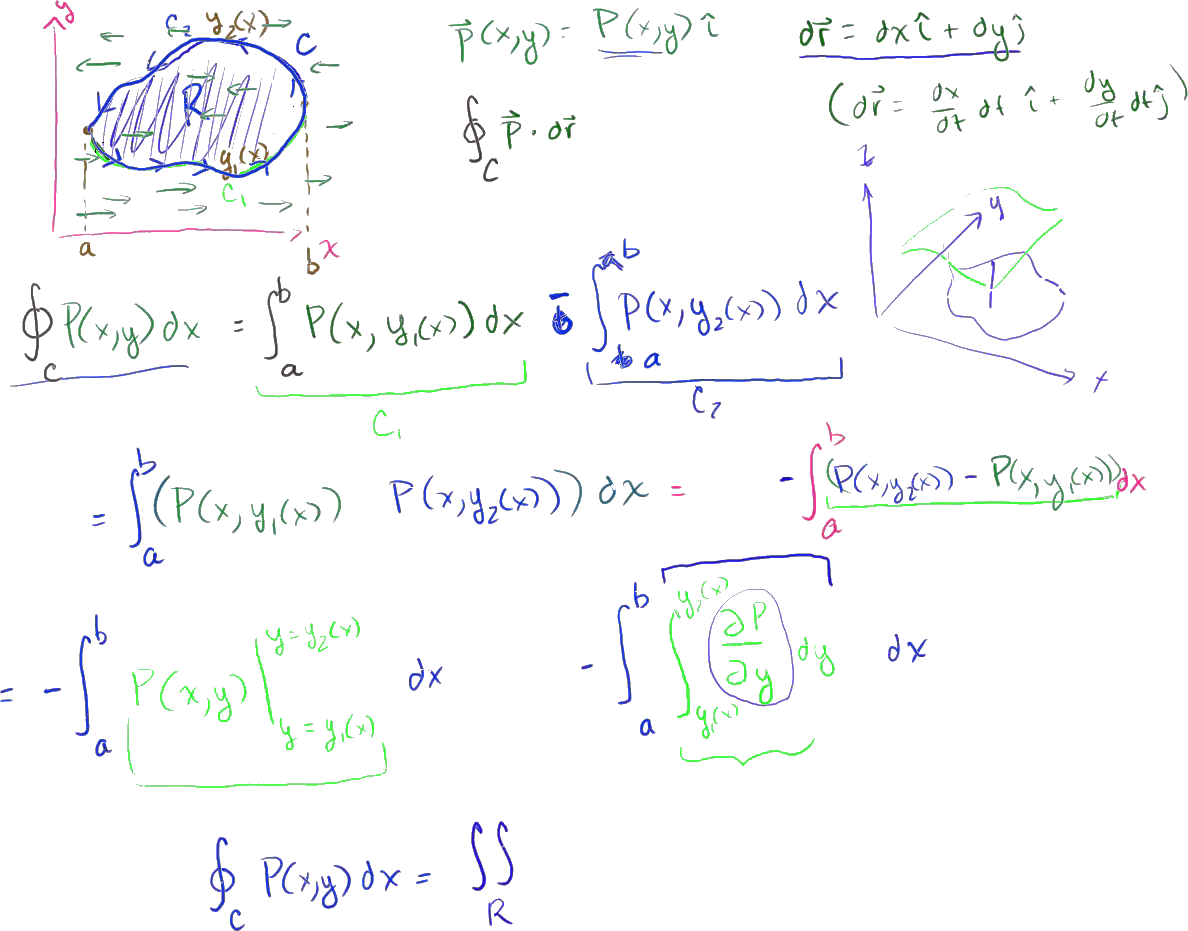 y C₂ y₂(x) C
R
y₁(x)
C₁
a b x
P⃗(x,y) = P(x,y) î dr⃗ = dx î + dy ĵ
∮_C P⃗ · dr⃗ (dr⃗ = dx/dt dt î + dy/dt dt ĵ)
z y x
∮_C P(x,y) dx = ∫_a^b P(x, y₁(x)) dx - ∫_a^b P(x, y₂(x)) dx
C₁ C₂
= ∫_a^b (P(x, y₁(x)) P(x, y₂(x))) dx = - ∫_a^b (P(x, y₂(x)) - P(x, y₁(x))) dx
= - ∫_a^b P(x,y) |_{y = y₁(x)}^{y = y₂(x)} dx - ∫_a^b ∫_{y₁(x)}^{y₂(x)} ∂P/∂y dy dx
∮_C P(x,y) dx = ∬_R